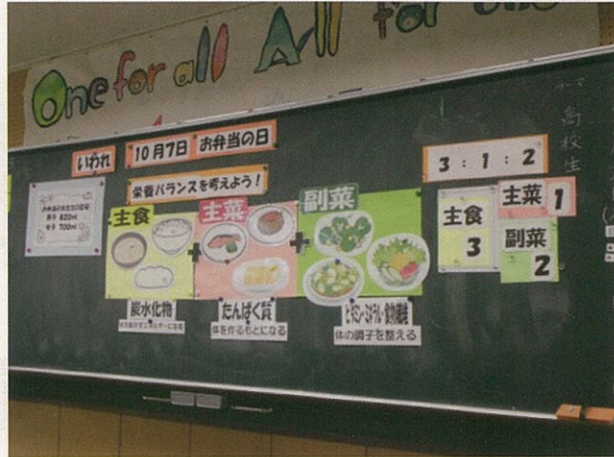 One for all All for one
いわれ
10月7日 お弁当の日
栄養バランスを考えよう!
男子 820ml
女子 700ml
主食
主菜
副菜
炭水化物
たんぱく質
体を作るもとになる
ビタミン・ミネラル・食物繊維
体の調子を整える
3:1:2
主食
3
主菜 1
副菜
2
高校生